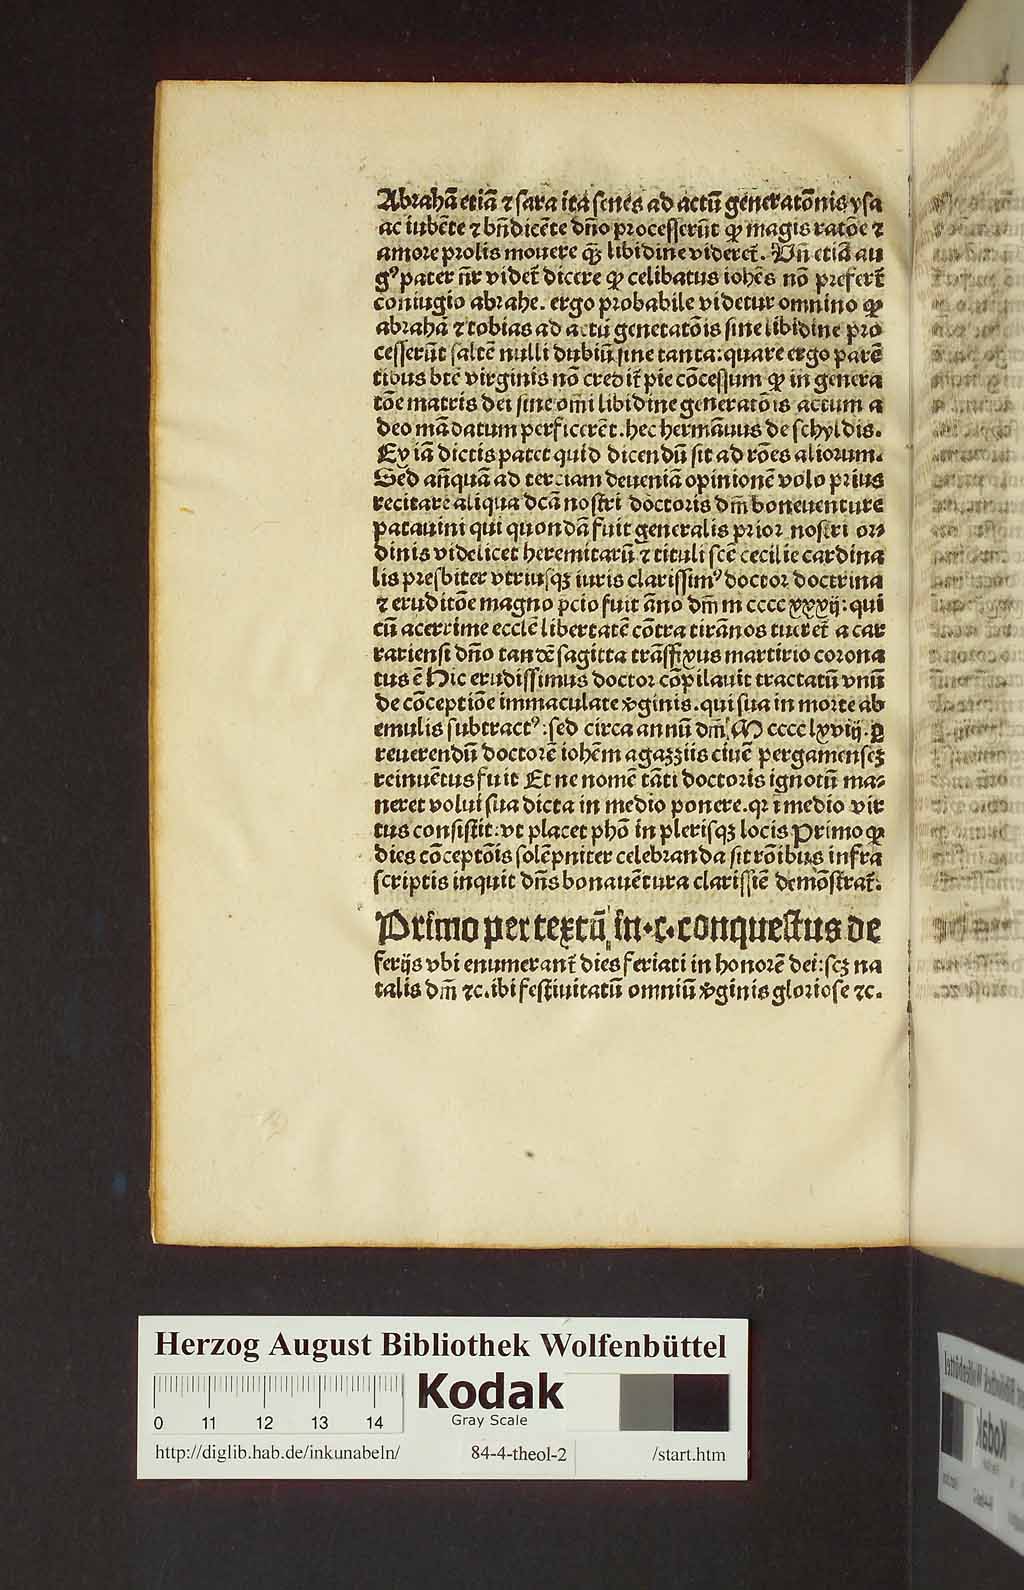 Abrahā etiā ⁊ sara ita senes ad actū generatōnis ysa
ac iubēte ⁊ bn̄dicēte dn̄o processerūt ꝙ magis ratōe ⁊
amore prolis mouere ꝙ̄ libidine videret̄. Vn̄ etiā au
gꝰ pater nr̄ videt̄ dicere ꝙ celibatus iohēs nō prefert̄
coniugio abrahe. ergo probabile videtur omnino ꝙ
abrahā ⁊ tobias ad actū genetatōis sine libidine pro
cesserūt saltē nulli dubiū sine tanta: quare ergo parē
tibus btē virginis nō credit̄ pie cōcessum ꝙ in genera
tōe matris dei sine om̄i libidine generatōis actum a
deo mādatum perficerēt. hec hermāuus de schyldis.
Ex iā dictis patet quid dicendū sit ad rōes aliorum.
Sed an̄quā ad terciam deueniā opinionē volo prius
recitare aliqua dcā nostri doctoris dm̄ boneuenture
patauini qui quondā fuit generalis prior nostri or⸗
dinis videlicet heremitarū ⁊ tituli scē cecilie cardina
lis presbiter vtriusqꝫ iuris clarissimꝰ doctor doctrina
⁊ eruditōe magno p̄cio fuit āno dm̄ m cccc xxxij: qui
cū acerrime ecclē libertatē cōtra tirānos tueret̄ a car
rariensi dn̄o tandē sagitta trāsfixus martirio corona
tus ē Hic erudissimus doctor cōpilauit tractatū vnū
de cōceptiōe immaculate v̄ginis. qui sua in morte ab
emulis subtractꝰ: sed circa annū dm̄ M cccc lxviij. ꝑ
reuerendū doctorē iohēm agazziis ciuē pergamensēꝫ
reinuētus fuit Et ne nomē tāti doctoris ignotū ma⸗
neret volui sua dicta in medio ponere. qꝛ ī medio vir
tus consistit: vt placet phō in plerisqꝫ locis Primo ꝙ
dies cōceptōis solēpniter celebranda sit rōibus infra
scriptis inquit dn̄s bonauētura clarissīe demōstrat̄.
Primo per textū in .c. conquestus de
ferijs vbi enumerant̄ dies feriati in honorē dei: scꝫ na
talis dm̄ ⁊c. ibi festiuitatū omniū v̄ginis gloriose ⁊c.
Herzog August Bibliothek Wolfenbüttel
Kodak
Gray Scale
0 11 12 13 14
http://diglib.hab.de/inkunabeln/ 84-4-theol-2 /start.htm